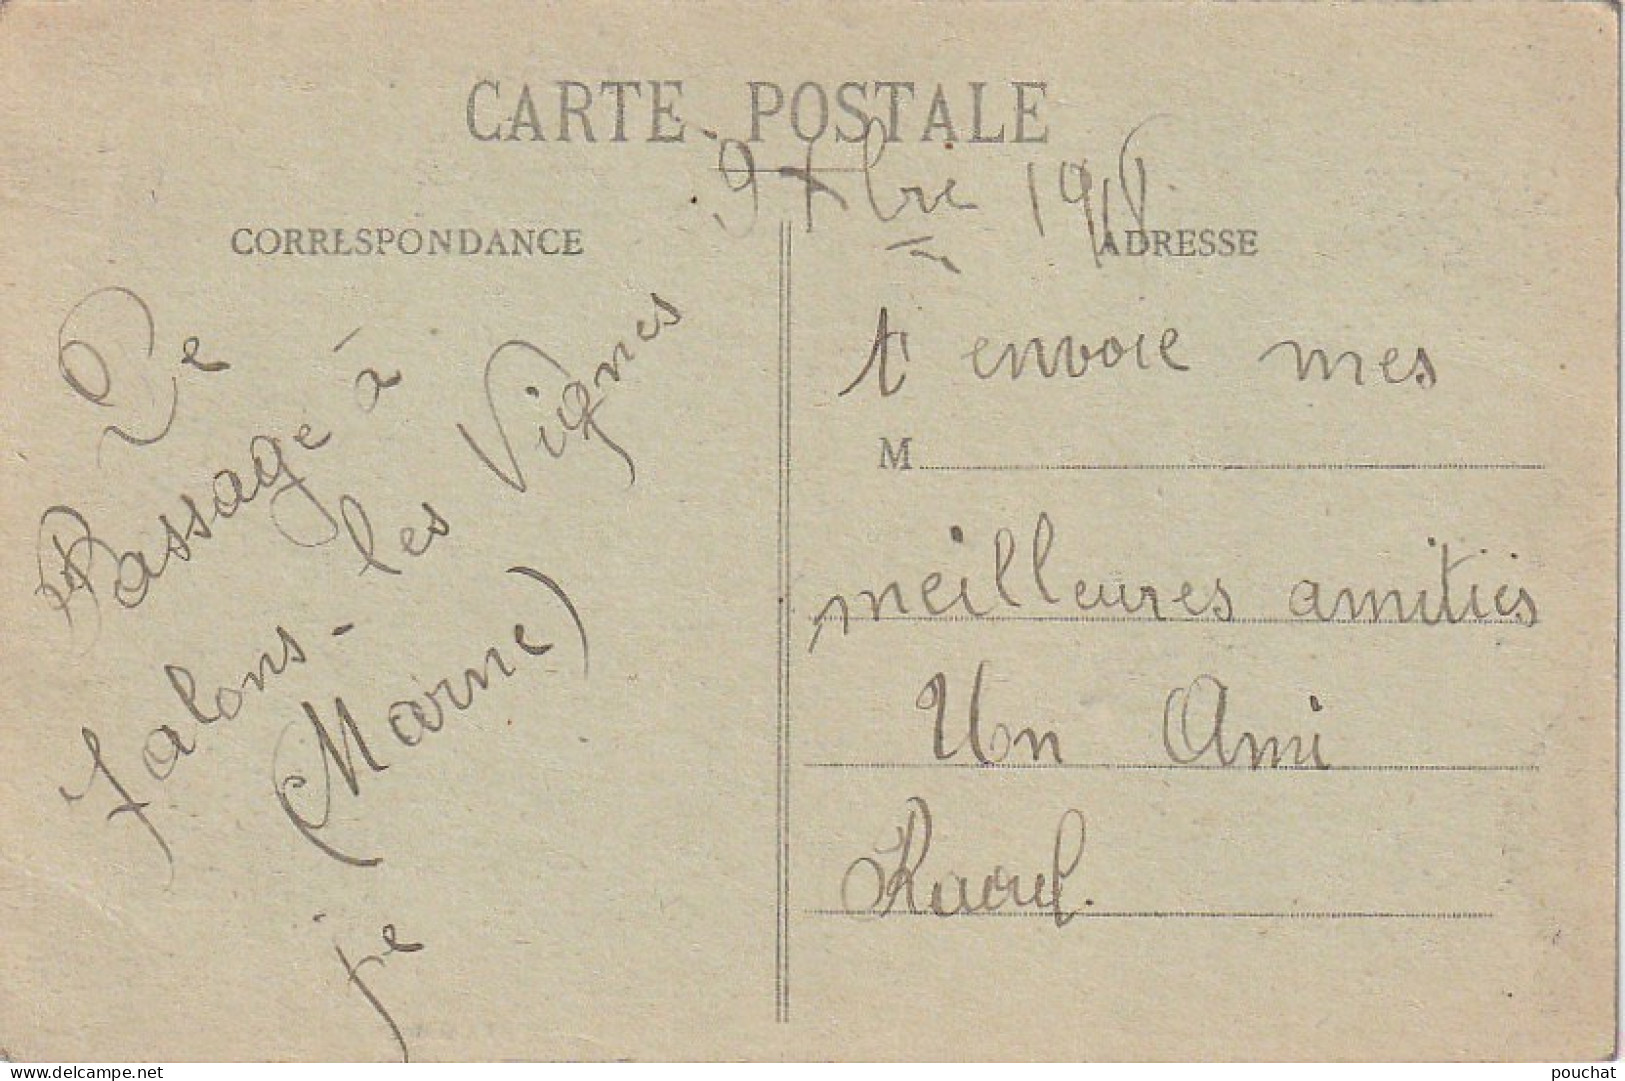 CARTE POSTALE
9 Xbre 1918
CORRESPONDANCE
ADRESSE
De
Passage à
Jalons-les Vignes
(Marne)
je
t'envoie mes
M
meilleures amitiés
Un Ami
Raoul.
pouchat